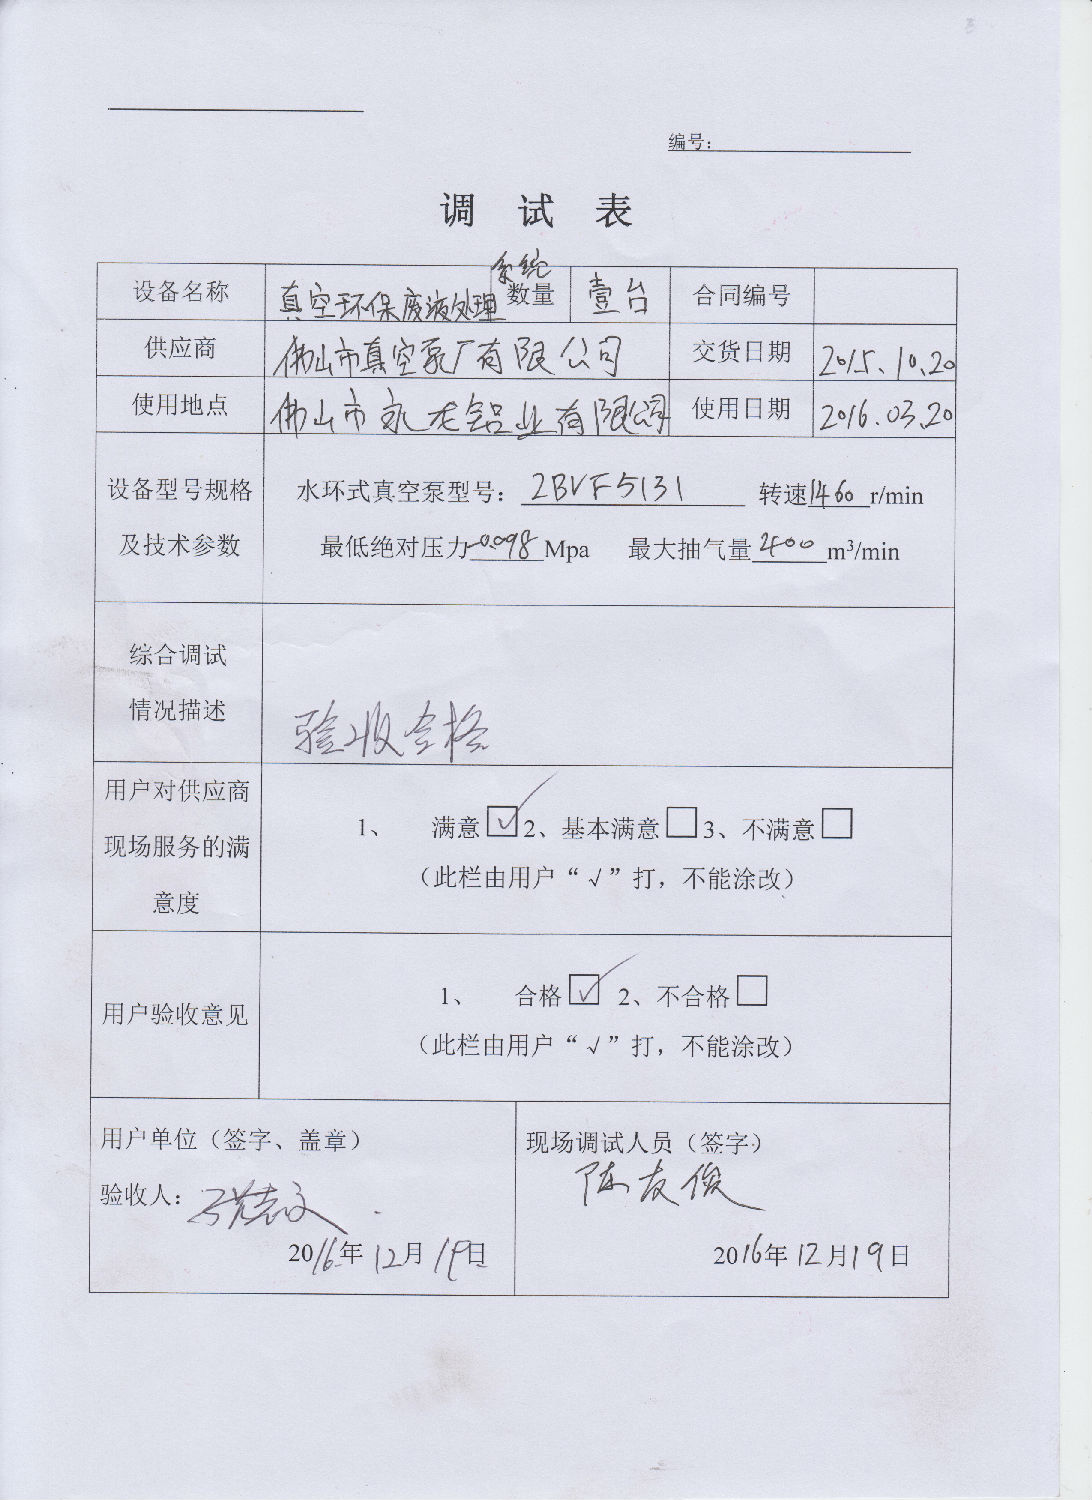 编号：
调 试 表
设备名称 真空环保废液处理系统 数量 壹台 合同编号
供应商 佛山市真空泵厂有限公司 交货日期 2015.10.20
使用地点 佛山市永龙铝业有限公司 使用日期 2016.03.20
设备型号规格 水环式真空泵型号：2BVF5131 转速1460r/min
及技术参数 最低绝对压力-0.098Mpa 最大抽气量 400 m³/min
综合调试
情况描述
验收合格
用户对供应商
现场服务的满
意度
1、 满意☑2、基本满意□3、不满意□
（此栏由用户“√”打，不能涂改）
用户验收意见
1、 合格☑ 2、不合格□
（此栏由用户“√”打，不能涂改）
用户单位（签字、盖章）
验收人：
2016年12月19日
现场调试人员（签字）
陈友俊
2016年12月19日